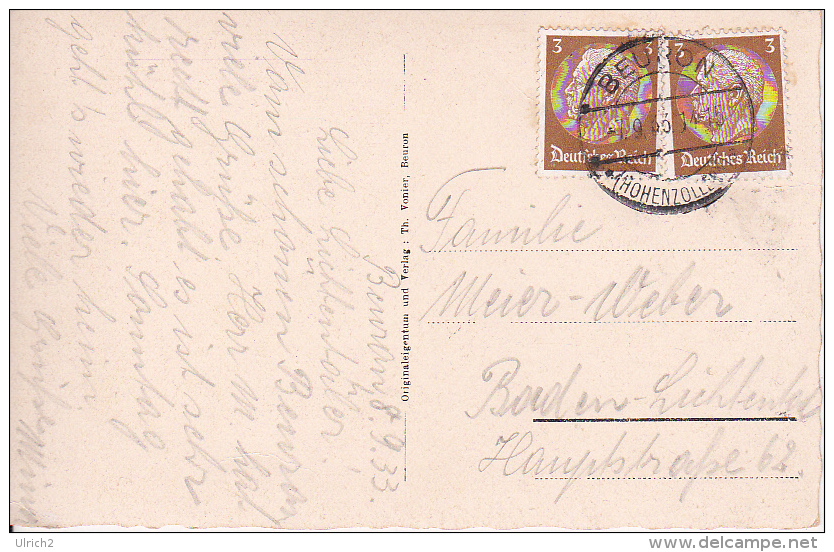 Beuron, 8.9.33.
Liebe Lichtentaler!
Vom schönen Beuron
viele Grüße. Herr M. hat
recht gehabt es ist sehr
kühl hier. Sonntag
geht's wieder heim.
Viele Grüße
Originaleigentum und Verlag: Th. Vonier, Beuron
3
3
Deutsches Reich
Deutsches Reich
BEURON
(HOHENZOLL
Familie
Meier-Weber
Baden-Lichtental
Hauptstraße 62.
Ulrich2
delcampe.net